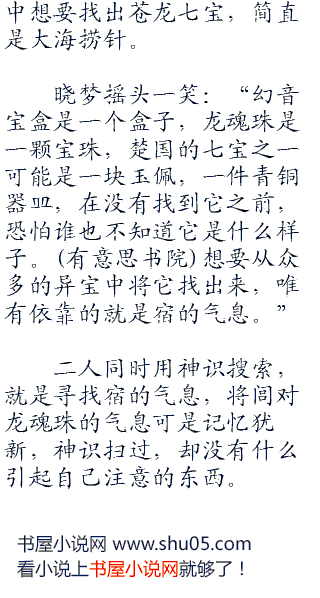 中想要找出苍龙七宝，简直
是大海捞针。
晓梦摇头一笑：“幻音
宝盒是一个盒子，龙魂珠是
一颗宝珠，楚国的七宝之一
可能是一块玉佩，一件青铜
器皿，在没有找到它之前，
恐怕谁也不知道它是什么样
子。(有意思书院)想要从众
多的异宝中将它找出来，唯
有依靠的就是宿的气息。”
二人同时用神识搜索，
就是寻找宿的气息，将闾对
龙魂珠的气息可是记忆犹
新，神识扫过，却没有什么
引起自己注意的东西。
书屋小说网 www.shu05.com
看小说上书屋小说网就够了！